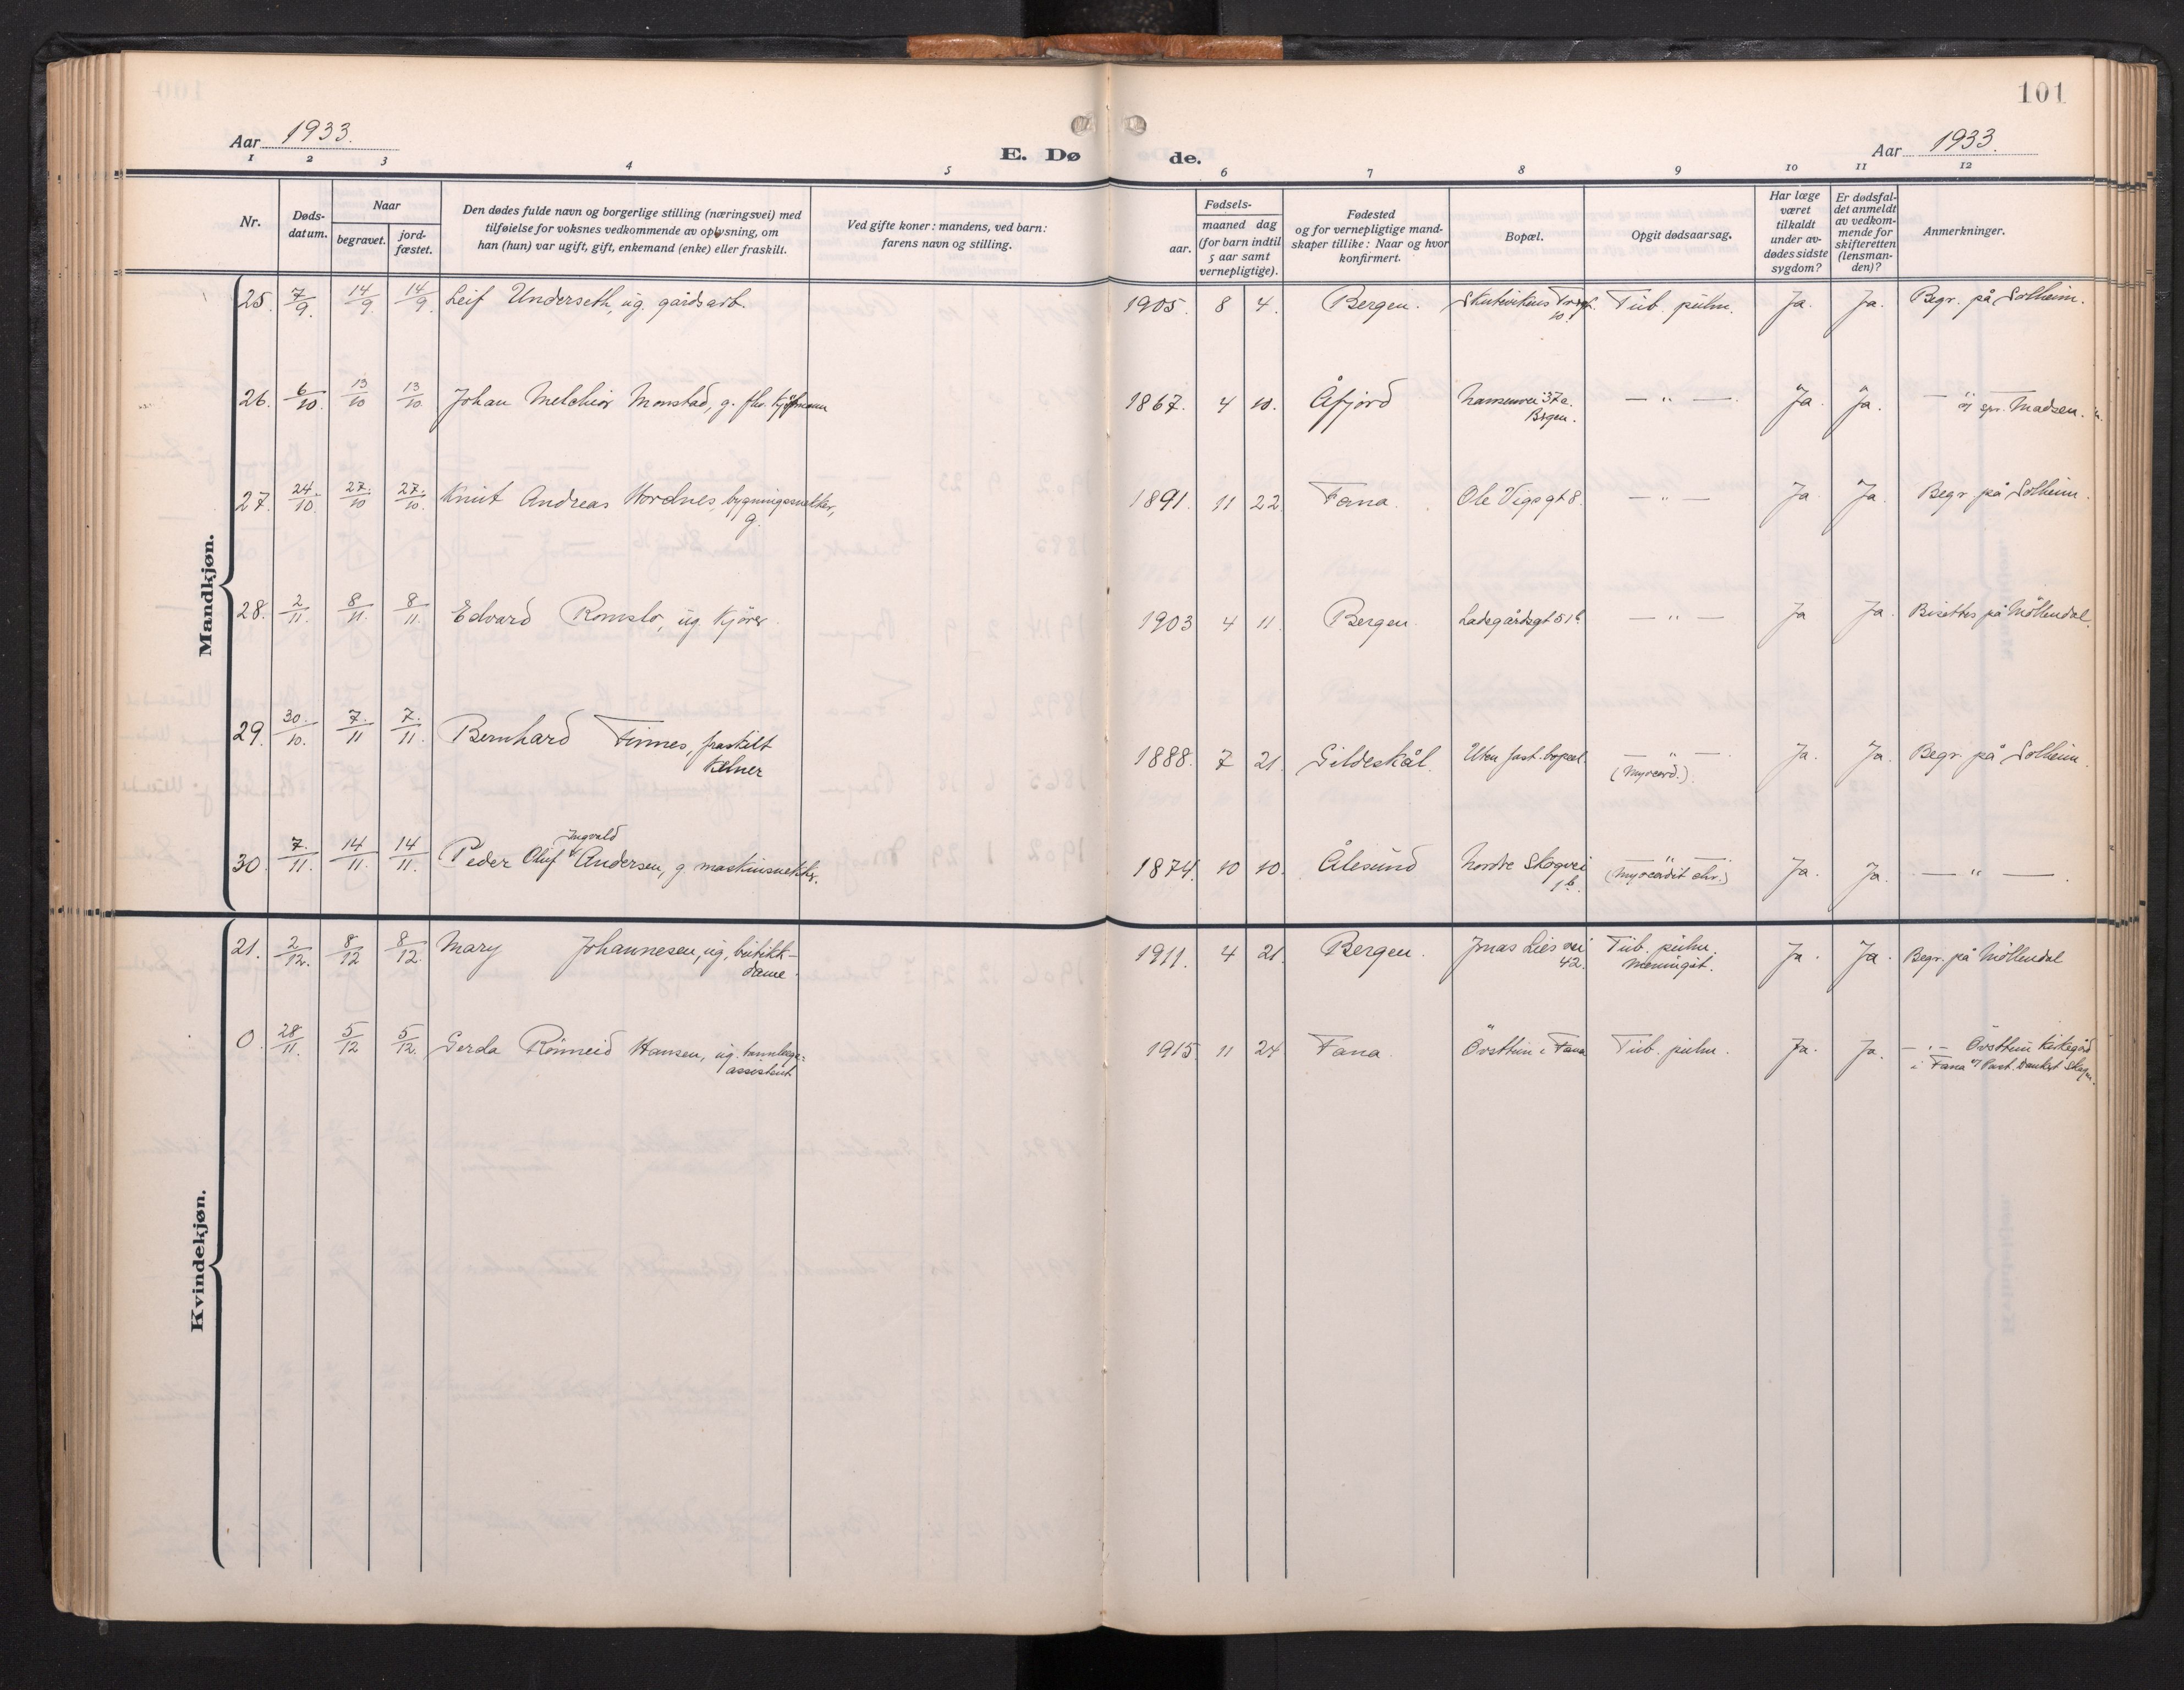 101
Aar 1933.
E. Dø de.
Aar 1933.
1 2 3 4 5 6 7 8 9 10 11 12
Nr.
Døds-
datum.
Naar
begravet.
jord-
fæstet.
Den dødes fulde navn og borgerlige stilling (næringsvei) med
tilføielse for voksnes vedkommende av oplysning, om
han (hun) var ugift, gift, enkemand (enke) eller fraskilt.
Ved gifte koner: mandens, ved barn:
farens navn og stilling.
Fødsels-
aar.
maaned dag
(for barn indtil
5 aar samt
vernepligtige).
Fødested
og for vernepligtige mand-
skaper tillike: Naar og hvor
konfirmert.
Bopæl.
Opgit dødsaarsag.
Har læge
været
tilkaldt
under av-
dødes sidste
sygdom?
Er dødsfal-
det anmeldt
av vedkom-
mende for
skifteretten
(lensman-
den)?
Anmerkninger.
Mandkjøn.
25. 7/9. 14/9. 14/9. Leif Underseth, ug. gårdsarb. 1905. 8 4. Bergen. Skutevikens Torg 10. Tub. pulm. Ja. Ja. Begr. på Solheim.
26. 6/10. 13/10 13/10 Johan Melchior Monstad, g. fhv. kjøpmann 1867. 4 10. Åfjord Nansenvei 37a. — " — Ja. Ja. — "
Bergen. af spr. Madsen.
27. 24/10. 27/10 27/10. Knut Andreas Hordnes, bygningssnekker, 1891. 11 22. Fana. Ole Vigs gt 8. — " — Ja. Ja. Begr. på Solheim.
g.
28. 2/11. 8/11. 8/11. Edvard Romslo, ug kjører 1903 4 11. Bergen. Ladegårdsgt 51b — " — Ja Ja. Bisettes på Møllendal.
29. 30/10. 7/11 7/11. Bernhard Finnes, fraskilt 1888. 7 21. Gildeskål. Uten fast bopæl. — " — Ja. Ja. Begr. på Solheim.
Kelner (myocard.).
30. 7/11. 14/11. 14/11. Peder Oluf Ingvald Andersen, g. maskinsnekker. 1874. 10 10. Ålesund Nordre Skogvei — " — Ja. Ja. — " —.
1b. (myocardit chr.)
Kvindekjøn.
21. 2/12. 8/12 8/12. Mary Johannesen, ug. butikk- 1911. 4 21. Bergen. Jonas Lies vei Tub. pulm. Ja. Ja. Begr. på Møllendal
dame. 42. Meningit.
0. 28/11. 5/12 5/12. Gerda Rønneid Hansen, ug. tannlæge- 1915. 11 24 Fana. Øvsttun i Fana Tub. pulm. Ja. Ja. — " — Øvsttun kirkegård
assistent i Fana af Past. Dankert Skagen.